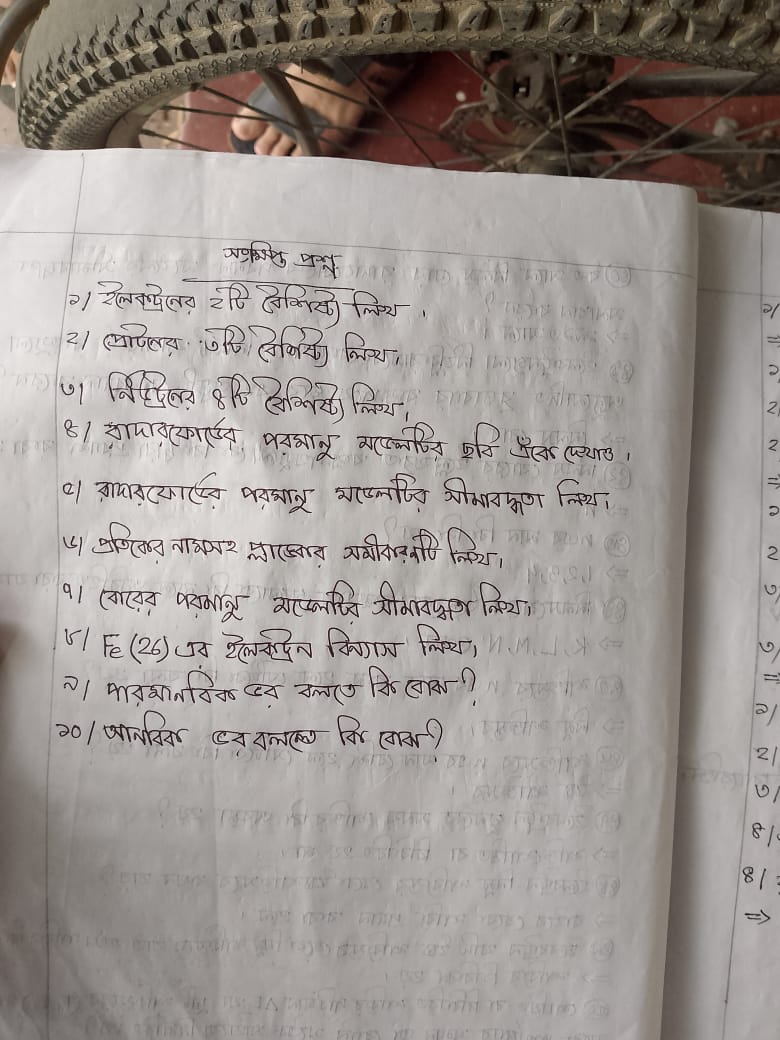 সংক্ষিপ্ত প্রশ্ন
১/ ইলেকট্রনের ২টি বৈশিষ্ট্য লিখ।
২/ প্রোটনের ৩টি বৈশিষ্ট্য লিখ,
৩/ নিউট্রনের ৪টি বৈশিষ্ট্য লিখ,
৪/ রাদারফোর্ডের পরমানু মডেলটির ছবি এঁকে দেখাও।
৫/ রাদারফোর্ডের পরমানু মডেলটির সীমাবদ্ধতা লিখ,
৬/ প্রতিকের নামসহ প্লাঙ্কের সমীকরণটি লিখ,
৭/ বোরের পরমানু মডেলটির সীমাবদ্ধতা লিখ,
৮/ Fe (26) এর ইলেকট্রন বিন্যাস লিখ,
৯/ পারমানবিক ভর বলতে কি বোঝ?
১০/ আনবিক ভর বলতে কি বোঝ?
১/
⇒
১
২
২
⇒
১
২
৩/
৩/
⇒
১/
২/
৩/
৪/
৪/
⇒